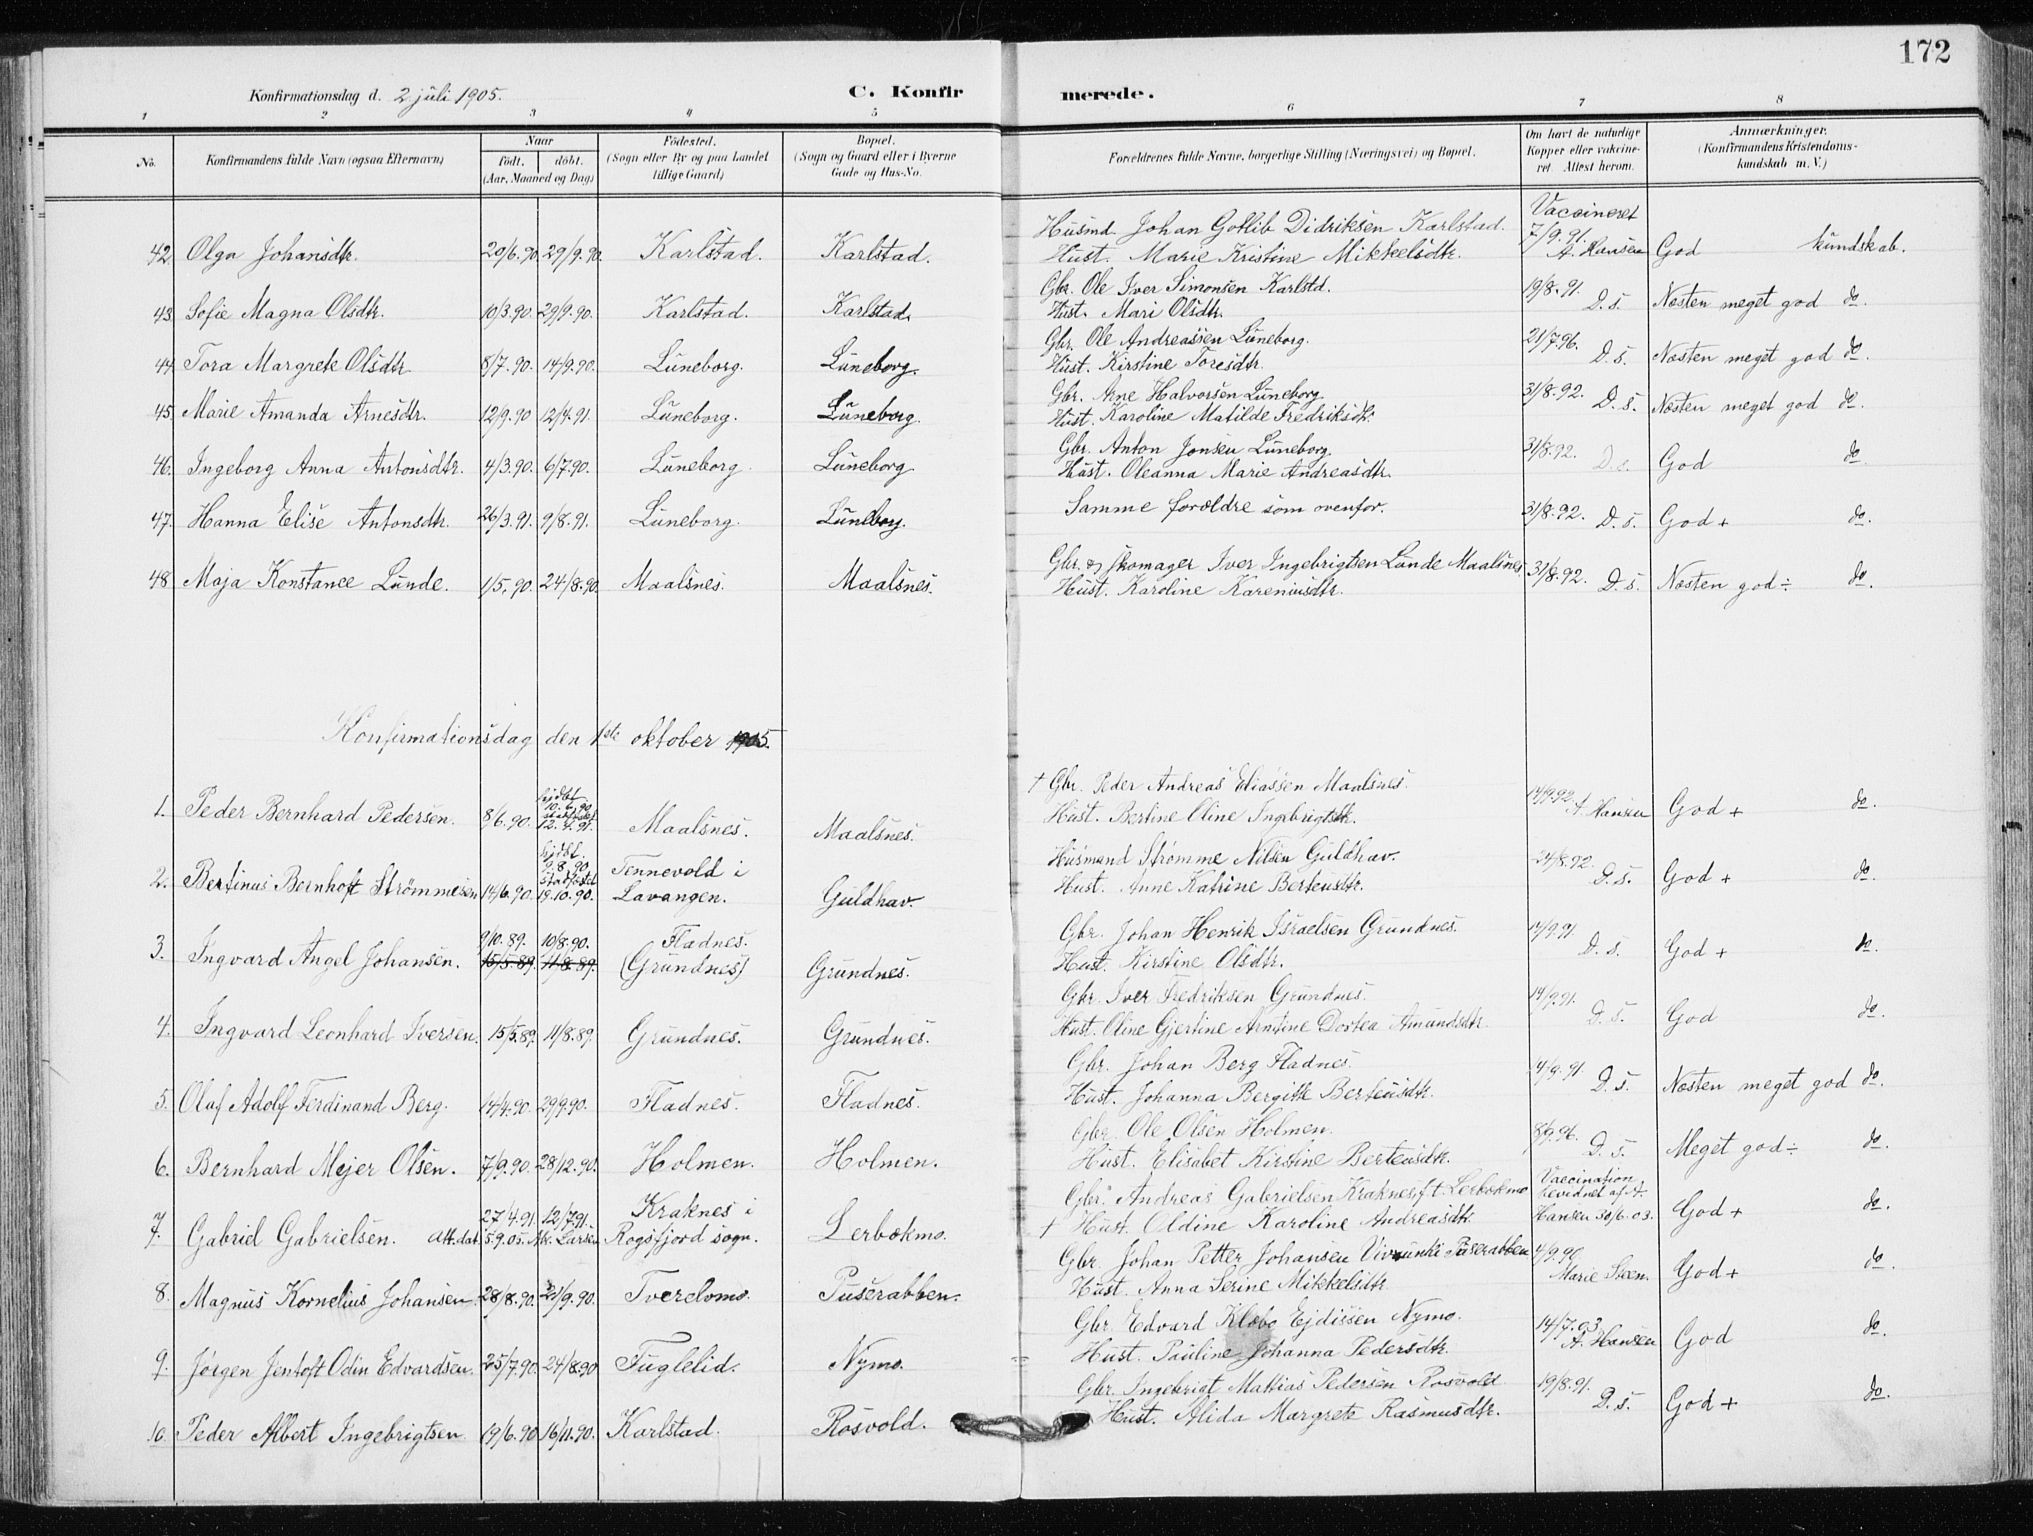 172
Konfirmationsdag d. 2 juli 1905.
C. Konfirmerede.
1 2 3 4 5 6 7 8
No. | Konfirmandens fulde Navn (ogsaa Efternavn) | Naar født. døbt. (Aar, Maaned og Dag) | Fødested. (Sogn eller By og paa Landet tillige Gaard) | Bopæl. (Sogn og Gaard eller i Byerne Gade og Hus-No. | Forældrenes fulde Navne, borgerlige Stilling (Næringsvei) og Bopæl. | Om havt de naturlige Kopper eller vakcineret. Attest herom. | Anmærkninger. (Konfirmandens Kristendomskundskab m. V.)
42. Olga Johansdtr. 20/6.90. 29/9.90. Karlstad. Karlstad. Husmd Johan Gotlib Didriksen Karlstad. Vaccineret 7/9.91. A. Hansen God kundskab.
Hust. Marie Kristine Mikkelsdtr.
43. Sofie Magna Olsdtr. 10/3.90. 29/9.90. Karlstad. Karlstad. Gbr. Ole Iver Simonsen Karlstd. 19/8.91. D. s. Næsten meget god do.
Hust. Mari Olsdtr.
44. Tora Margrete Olsdtr 8/7.90. 14/9.90. Luneborg. Luneborg. Gbr. Ole Andreassen Luneborg. 21/7.96. D. s. Næsten meget god do.
Hust. Kirstine Toresdtr.
45. Marie Amanda Arnesdtr. 12/9.90 12/4.91. Luneborg. Luneborg. Gbr. Arne Halvorsen Luneborg. 31/8.92. D. s. Næsten meget god do.
Hust. Karoline Matilde Fredriksdtr.
46. Ingeborg Anna Antonsdtr. 4/3.90. 6/7.90. Luneborg. Luneborg. Gbr. Anton Jonsen Luneborg. 31/8.92. D. s. God do
Hust. Oleanna Marie Andreasdtr.
47. Hanna Elise Antonsdtr. 26/3.91. 9/8.91. Luneborg. Luneborg. Samme forældre som ovenfor. 31/8.92. D. s. God + do.
48. Maja Konstance Lunde. 1/5.90. 24/8.90. Maalsnes. Maalsnes. Gbr. & skomager Iver Ingebrigtsen Lunde Maalsnes 31/8.92. D. s. Næsten god ÷ do.
Hust. Karoline Kareniusdtr.
Konfirmationsdag den 1ste oktober 1905.
1. Peder Bernhard Pedersen. 8/6.90. hjdbt 10.6.90 stadfæstet 12.4.91. Maalsnes. Maalsnes. † Gbr. Peder Andreas Eliassen Maalsnes. 14/9.92. A. Hansen God + do.
Hust. Bertine Oline Ingebrigtsdtr.
2. Bertinus Bernhoft Strømmesen 14/6.90. hjdbt. 9.8.90. stadfæstet 19.10.90. Tennevold i Lavangen. Guldhav. Husmand Strømme Nilsen Guldhav. 24/8.92. D. s. God + do.
Hust. Anne Katrine Berteusdtr.
3. Ingvard Angel Johansen. 9/10.89. 15/5.89. 10/8.90. 11/8.89. Fladnes. (Grundnes) Grundnes. Gbr. Johan Henrik Israelsen Grundnes. 14/9.91. D. s. God + do.
Hust. Kirstine Olsdtr.
4. Ingvard Leonhard Iversen. 15/5.89. 11/8.89. Grundnes. Grundnes. Gbr. Iver Fredriksen Grundnes. 14/9.91. D. s. God do.
Hust. Oline Gjertine Arntine Dortea Amundsdtr.
5. Olaf Adolf Ferdinand Berg. 14/4.90. 29/9.90. Fladnes. Fladnes. Gbr. Johan Berg Fladnes. 14/9.91. D. s. Næsten meget god do.
Hust. Johanna Bergitte Berteusdtr.
6. Bernhard Mejer Olsen. 7/9.90. 28/12.90. Holmen. Holmen. Gbr. Ole Olsen Holmen. 8/9.96. D. s. Meget god ÷ do.
Hust. Elisabet Kirstine Berteusdtr.
7. Gabriel Gabrielsen. Att. dat. 27/4.91. 12/7.91. 5.9.05. Ak. Larsen Kraknes i Rogsfjord sogn. Lerbækmo. Gbr. Andreas Gabrielsen Kraknes, f.t. Lerbækmo Vaccination bevidnet af A. Hansen 30/6.03. God + do.
† Hust. Oldine Karoline Andreasdtr.
8. Magnus Kornelius Johansen. 28/8.90. 21/9.90. Tverelvmo. Puserabben. Gbr. Johan Petter Johansen Puserabben 4/9.96 Marie Steen. God + do.
Hust. Anna Serine Mikkelsdtr.
9. Jørgen Jenhoft Odin Edvardsen. 25/7.90. 24/8.90 Fuglelid. Nymo. Gbr. Edvard Klæbo Ejdissen Nymo. 14/7.03. A. Hansen God do.
Hust. Pauline Johanna Pedersdtr.
10. Peder Albert Ingebrigtsen. 19/6.90 16/11.90. Karlstad. Rosvold. Gbr. Ingebrigt Mathias Pedersen Rosvold 19/8.91. D. s. God + do.
Hust. Alida Margrete Rasmusdtr.